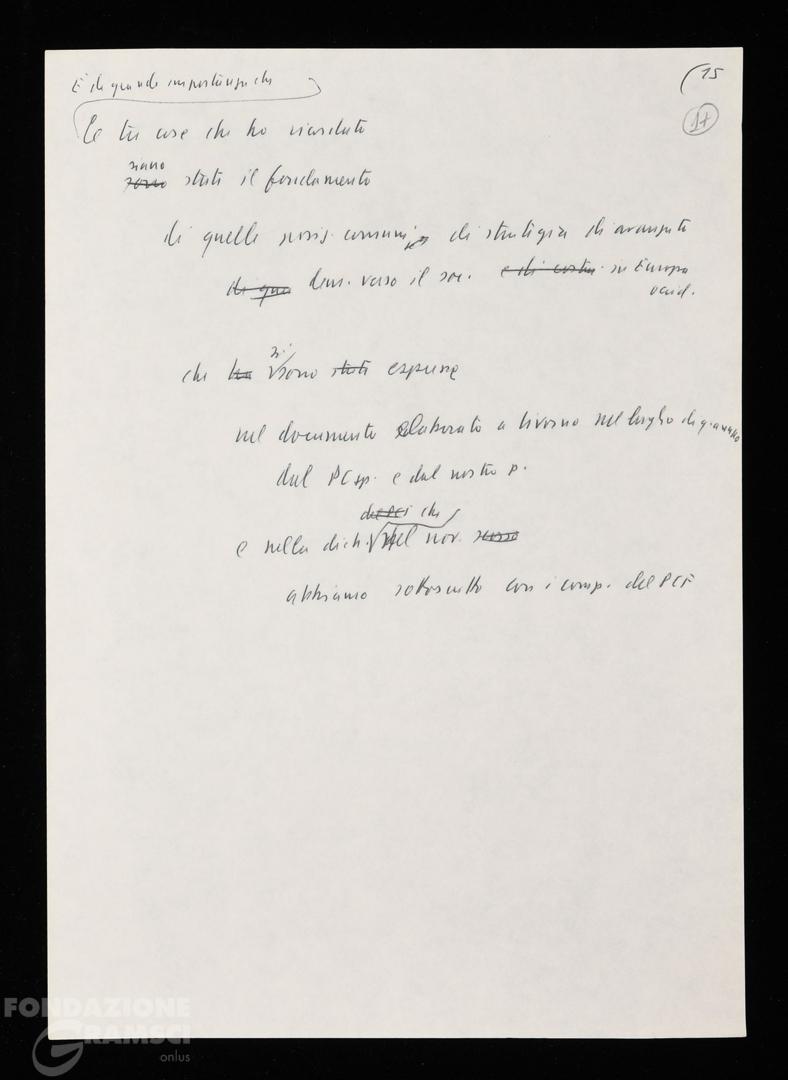 (15
17
È di grande importanza che
le tre cose che ho ricordato
siano
sono state il fondamento
di quelle posiz. comuni di strategia di avanzata
di qua dem. verso il soc. e di costru. in Europa
occid.
si
che ha sono state espresse
nel documento elaborato a Livorno nel luglio di q. anno
dal PCsp. e dal nostro p.
che
e nella dich. nel nov. scorso
abbiamo sottoscritto con i comp. del PCF
FONDAZIONE
GRAMSCI
onlus